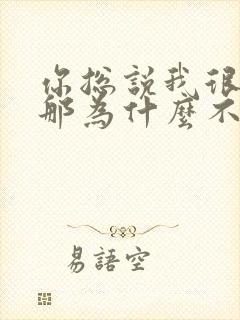 你總說我很
那為什麼不
易語空